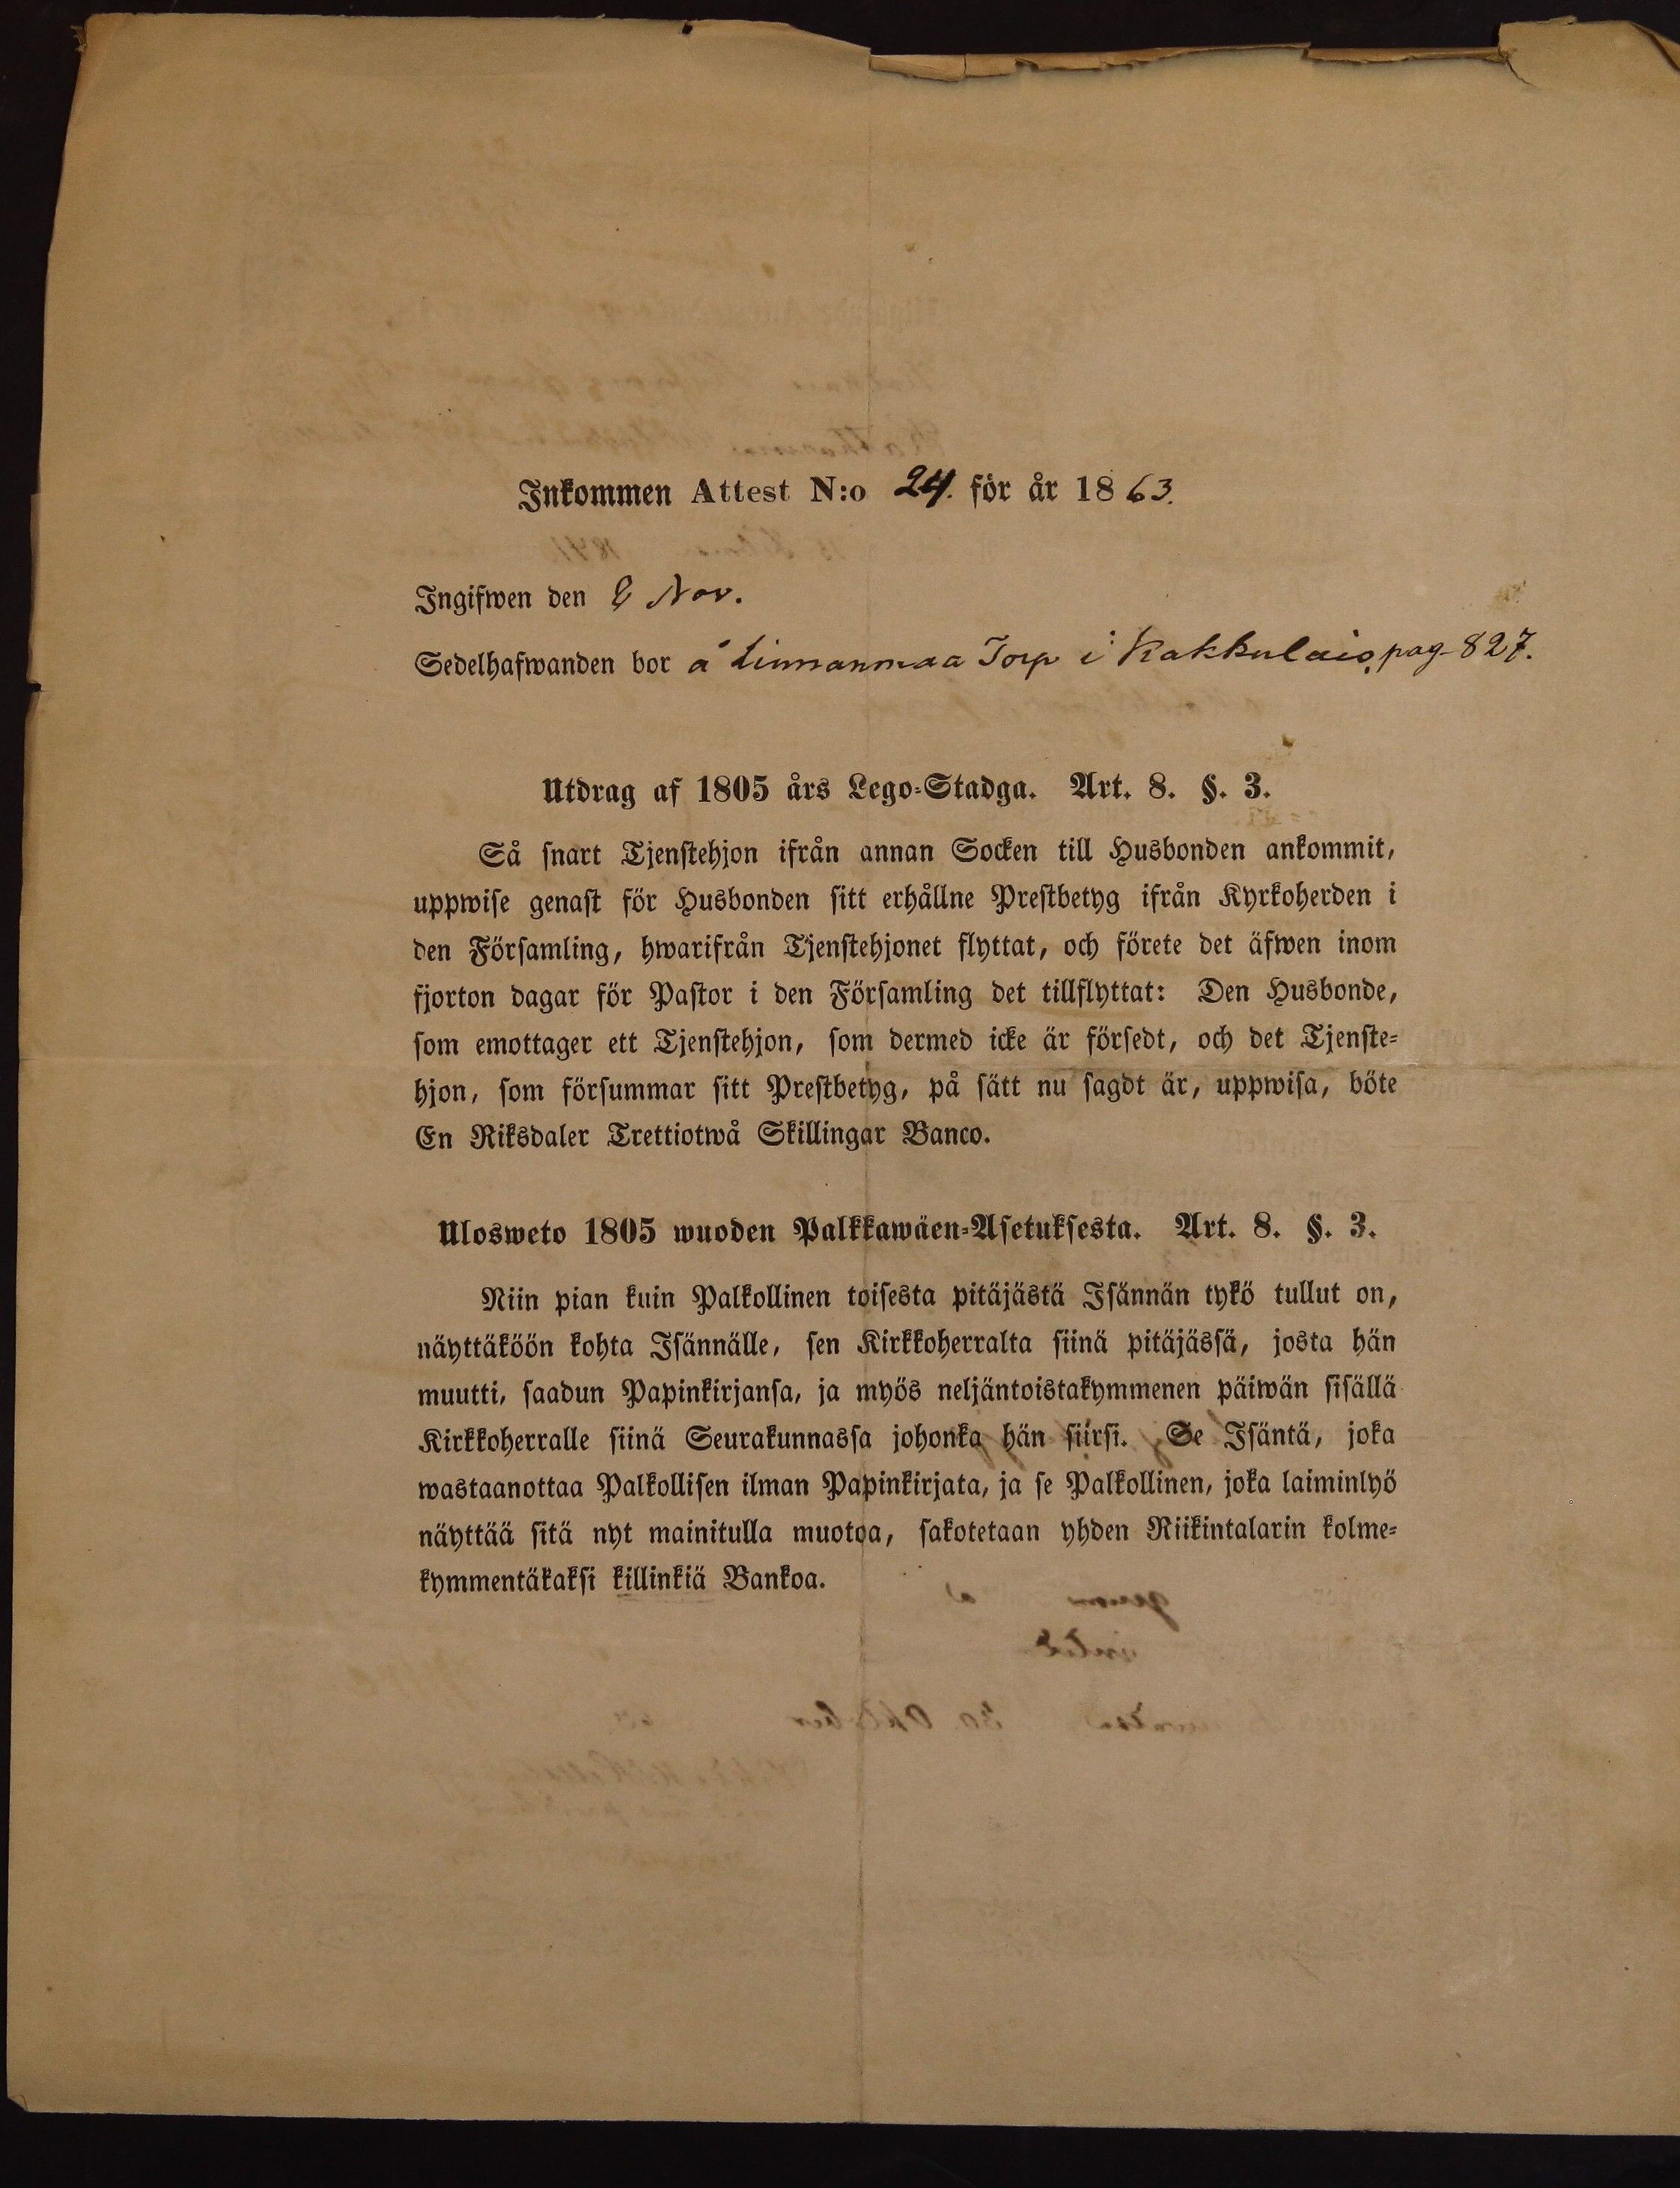 Inkommen Attest N:o 24. för år 1863.
Ingifwen den 8 Nov.
Sedelhafwanden bor å Linnanmaa Torp i Kakkulais, pag 827.
Utdrag af 1805 års Lego-Stadga. Art. 8. §. 3.
Så snart Tjenstehjon ifrån annan Socken till Husbonden ankommit,
uppwise genast för Husbonden sitt erhållne Prestbetyg ifrån Kyrkoherden i
den Församling, hwarifrån Tjenstehjonet flyttat, och förete det äfwen inom
fjorton dagar för Pastor i den Församling det tillflyttat: Den Husbonde,
som emottager ett Tjenstehjon, som dermed icke är försedt, och det Tjenste-
hjon, som försummar sitt Prestbetyg, på sätt nu sagdt är, uppwisa, böte
En Riksdaler Trettiotwå Skillingar Banco.
Ulosweto 1805 wuoden Palkkawäen-Asetuksesta. Art. 8. §. 3.
Niin pian kuin Palkollinen toisesta pitäjästä Isännän tykö tullut on,
näyttäköön kohta Isännälle, sen Kirkkoherralta siinä pitäjässä, josta hän
muutti, saadun Papinkirjansa, ja myös neljäntoistakymmenen päiwän sisällä
Kirkkoherralle siinä Seurakunnassa johonka hän siirsi. Se Isäntä, joka
wastaanottaa Palkollisen ilman Papinkirjata, ja se Palkollinen, joka laiminlyö
näyttää sitä nyt mainitulla muotoa, sakotetaan yhden Riikintalarin kolme-
kymmentäkaksi killinkiä Bankoa.